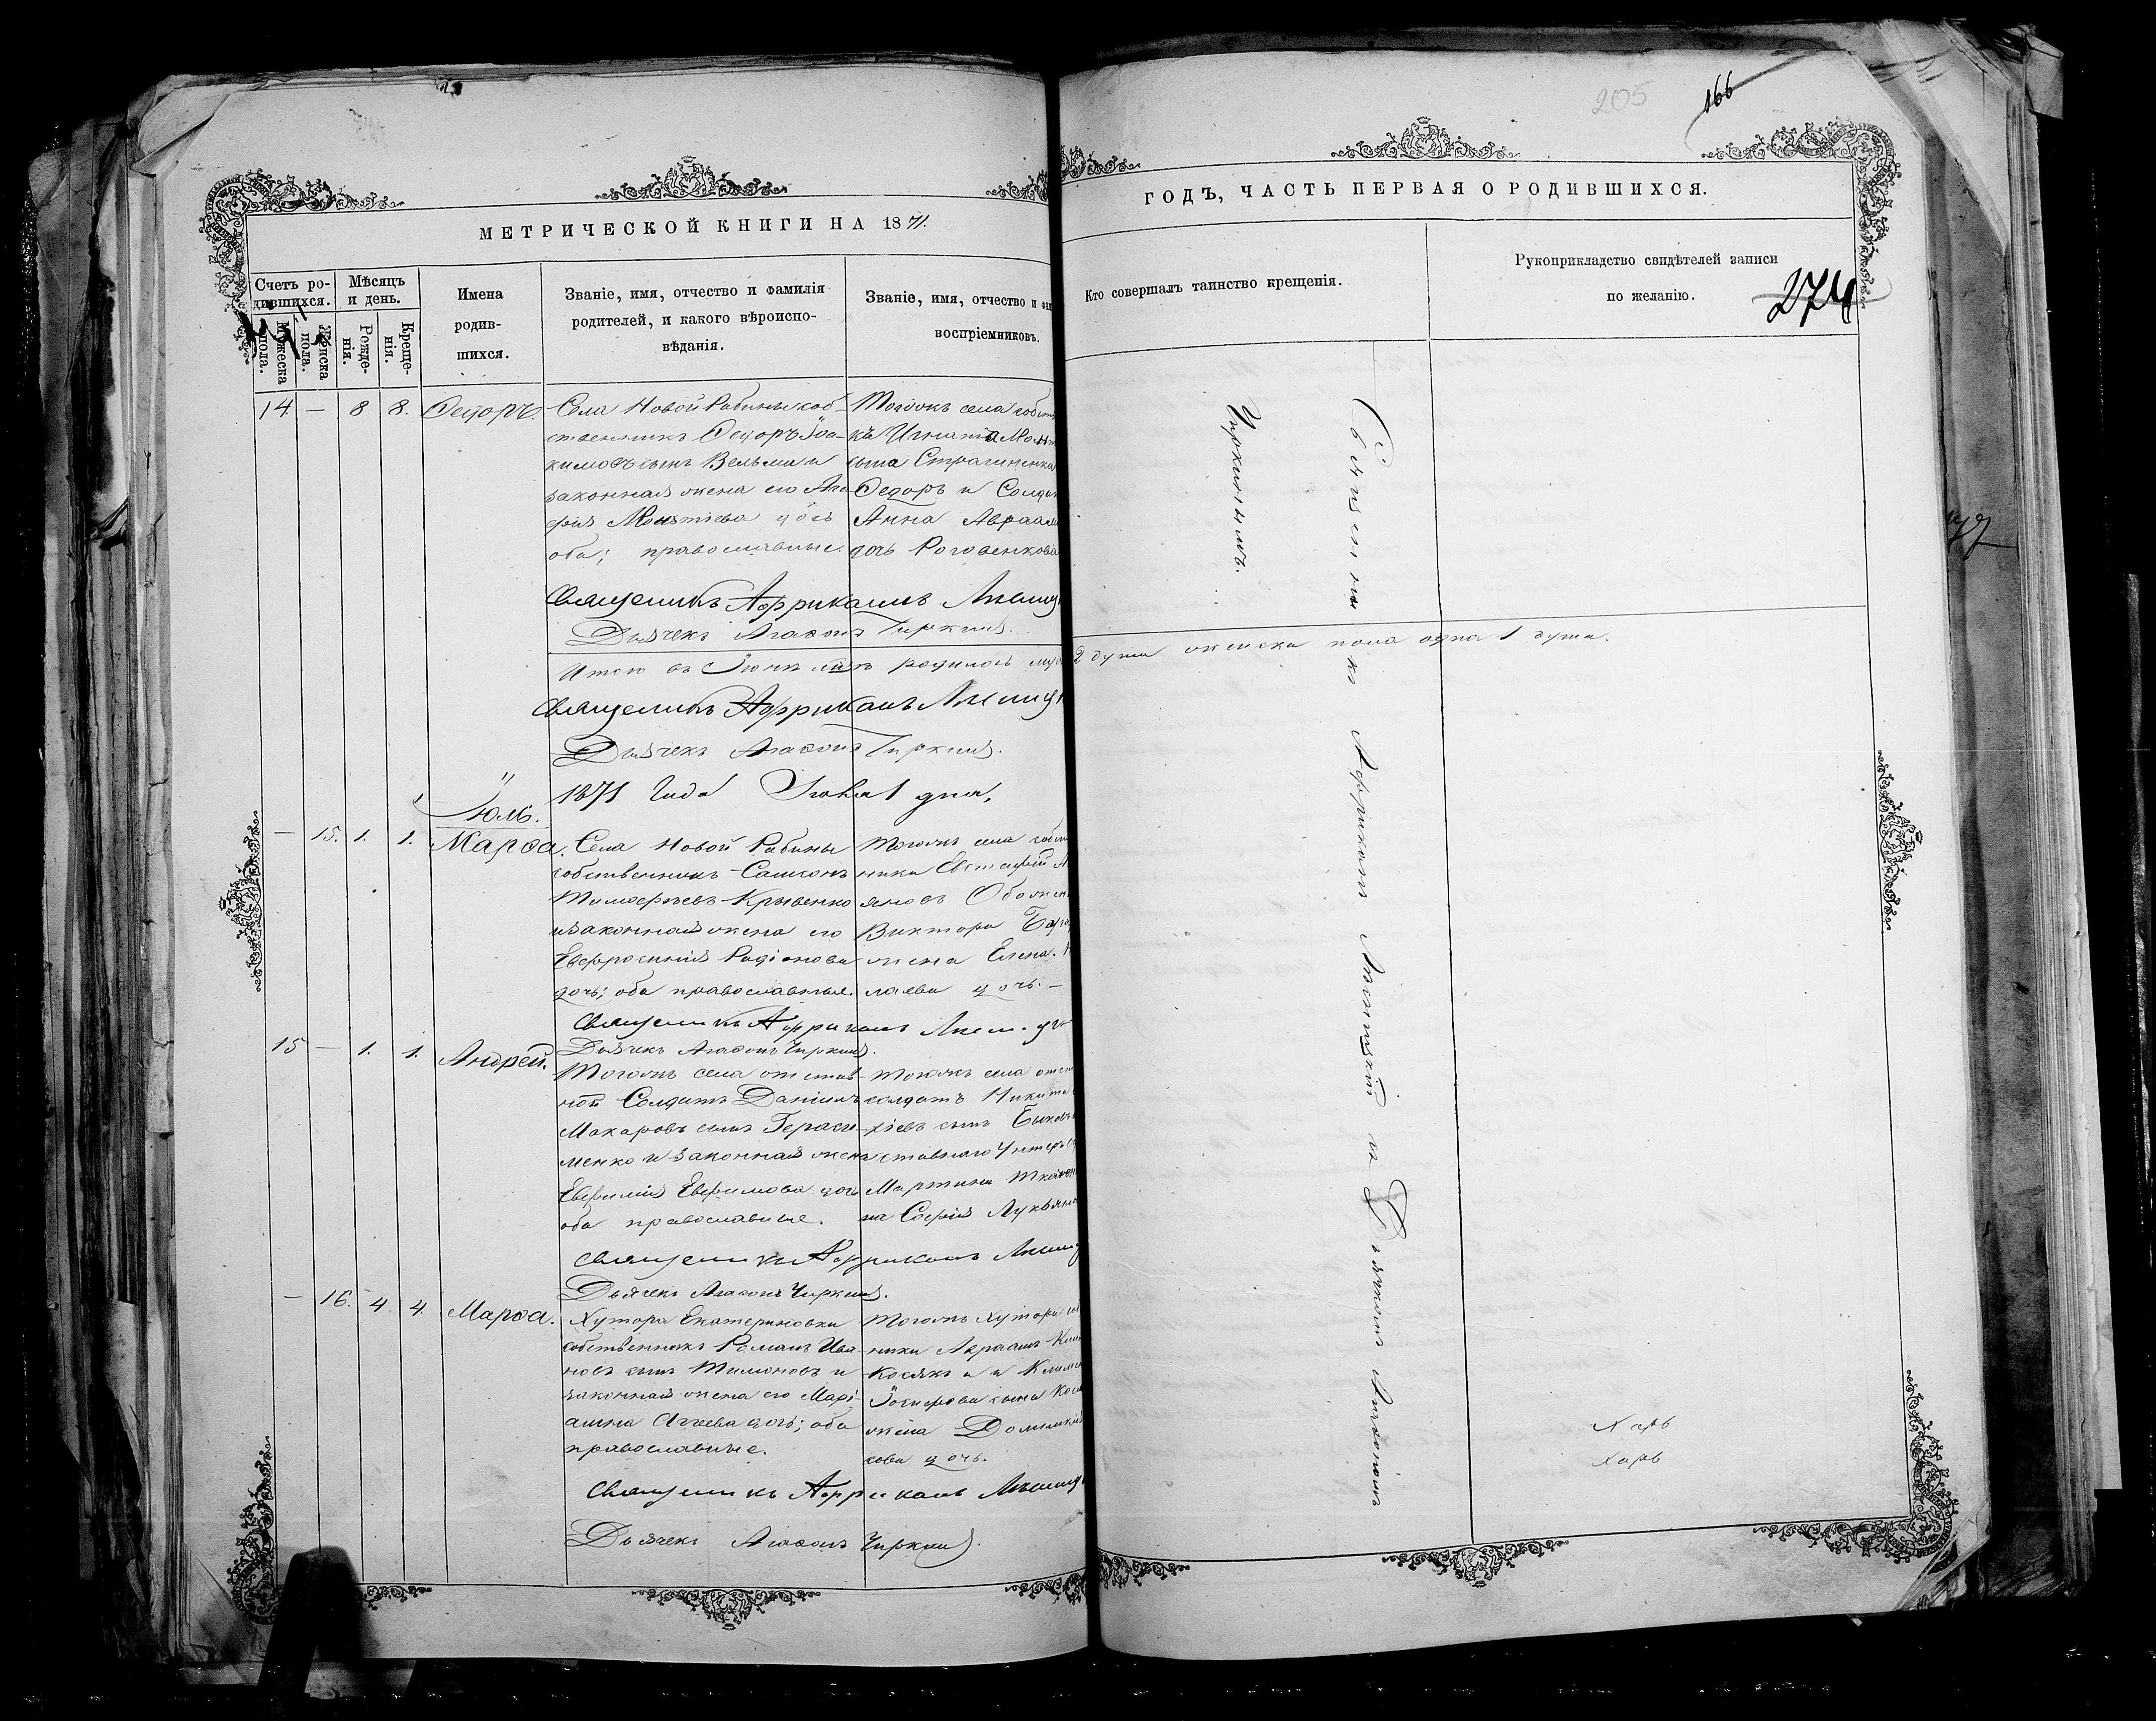 205
166
МЕТРИЧЕСКОЙ КНИГИ НА 1871.
ГОДЪ, ЧАСТЬ ПЕРВАЯ О РОДИВШИХСЯ.
Счетъ ро-
дившихся.
Мужеска
пола.
Женска
пола.
Мѣсяцъ
и день.
Рожде-
нія.
Креще-
нія.
Имена
родив-
шихся.
Званіе, имя, отчество и фамилія
родителей, и какого вѣроиспо-
вѣданія.
Званіе, имя, отчество и фам
воспріемниковъ.
Кто совершалъ таинство крещенія.
Рукоприкладство свидѣтелей записи
по желанію.
274
14. — 8 8. Ѳедоръ.
Села Новой Рабины соб-
ственникъ Ѳедоръ Іоа-
кимовъ сынъ Вельма и
законная жена его Ага-
фія дочь
оба; православные.
Тогожъ села собств
сына
Ѳедоръ и Солда
Анна Авраам
дочь Роговенкова
Священникъ Аффриканъ
Дьячекъ Агаѳонъ Чиркинъ.
Итого въ Іюнѣ м-цѣ родилось муж
2 души женска пола одна 1 душа.
Священникъ Аффриканъ
Дьячекъ Агаѳонъ Чиркинъ.
1871 Года Іюля 1 дня.
Іюль.
— 15. 1. 1. Марѳа.
Села Новой Рабины
собственникъ Самсонъ
Тимофѣевъ Крывенко
и законная жена его
Евфросинія Родіонова
дочь; оба православные.
Тогожъ села собст
ники Евстафій
Виктора
жена Елена
лаева дочь. —
Священникъ Аффриканъ
Дьячекъ Агаѳонъ Чиркинъ.
15 — 1. 1. Андрей.
Тогожъ села отстав-
ной Солдатъ Даніилъ
Макаровъ сынъ Гераси-
менко и законная жена
Евфимія Евфимова дочь
оба православные.
Тогожъ села отст
солдатъ Никита
сынъ
ставнаго Унтеръ
Мартина
на Софія Лукьяно
Священникъ Аффриканъ
Дьячекъ Агаѳонъ Чиркинъ.
— 16. 4. 4. Марѳа.
Хутора Екатериновки
собственникъ Романъ Ива-
новъ сынъ Тимоновъ и
законная жена его Марі-
анна Аггеева дочь; оба
православные.
Тогожъ Хутора со
ники Авраамъ
Косякъ и
сына
жена
кова дочь.
Священникъ Аффриканъ
Дьячекъ Агаѳонъ Чиркинъ.
Священникъ Аффриканъ съ Дьячкомъ Агаѳономъ
Чиркинымъ.